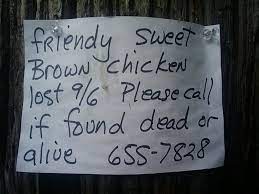 friendy sweet
Brown chicken
lost 9/6 Please call
if found dead or
alive 655-7828